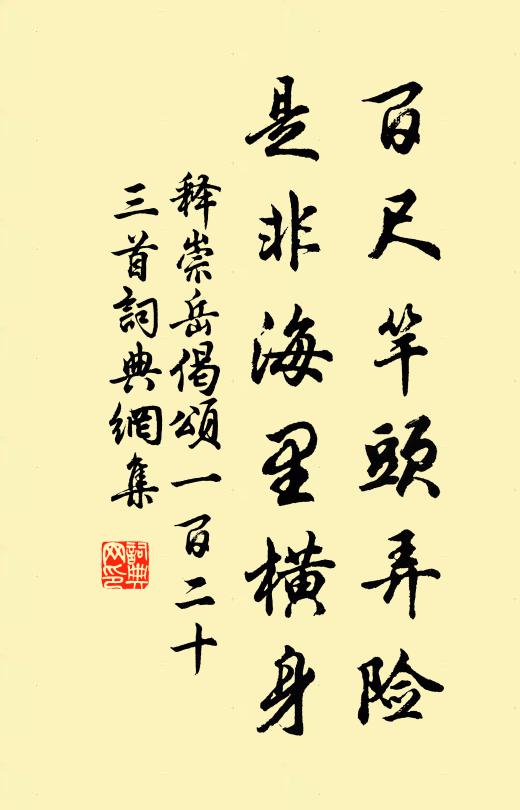 百尺竿頭弄险
是非海里横身
释崇岳偈頌一百二十
三首詞典網集
詞典
网印